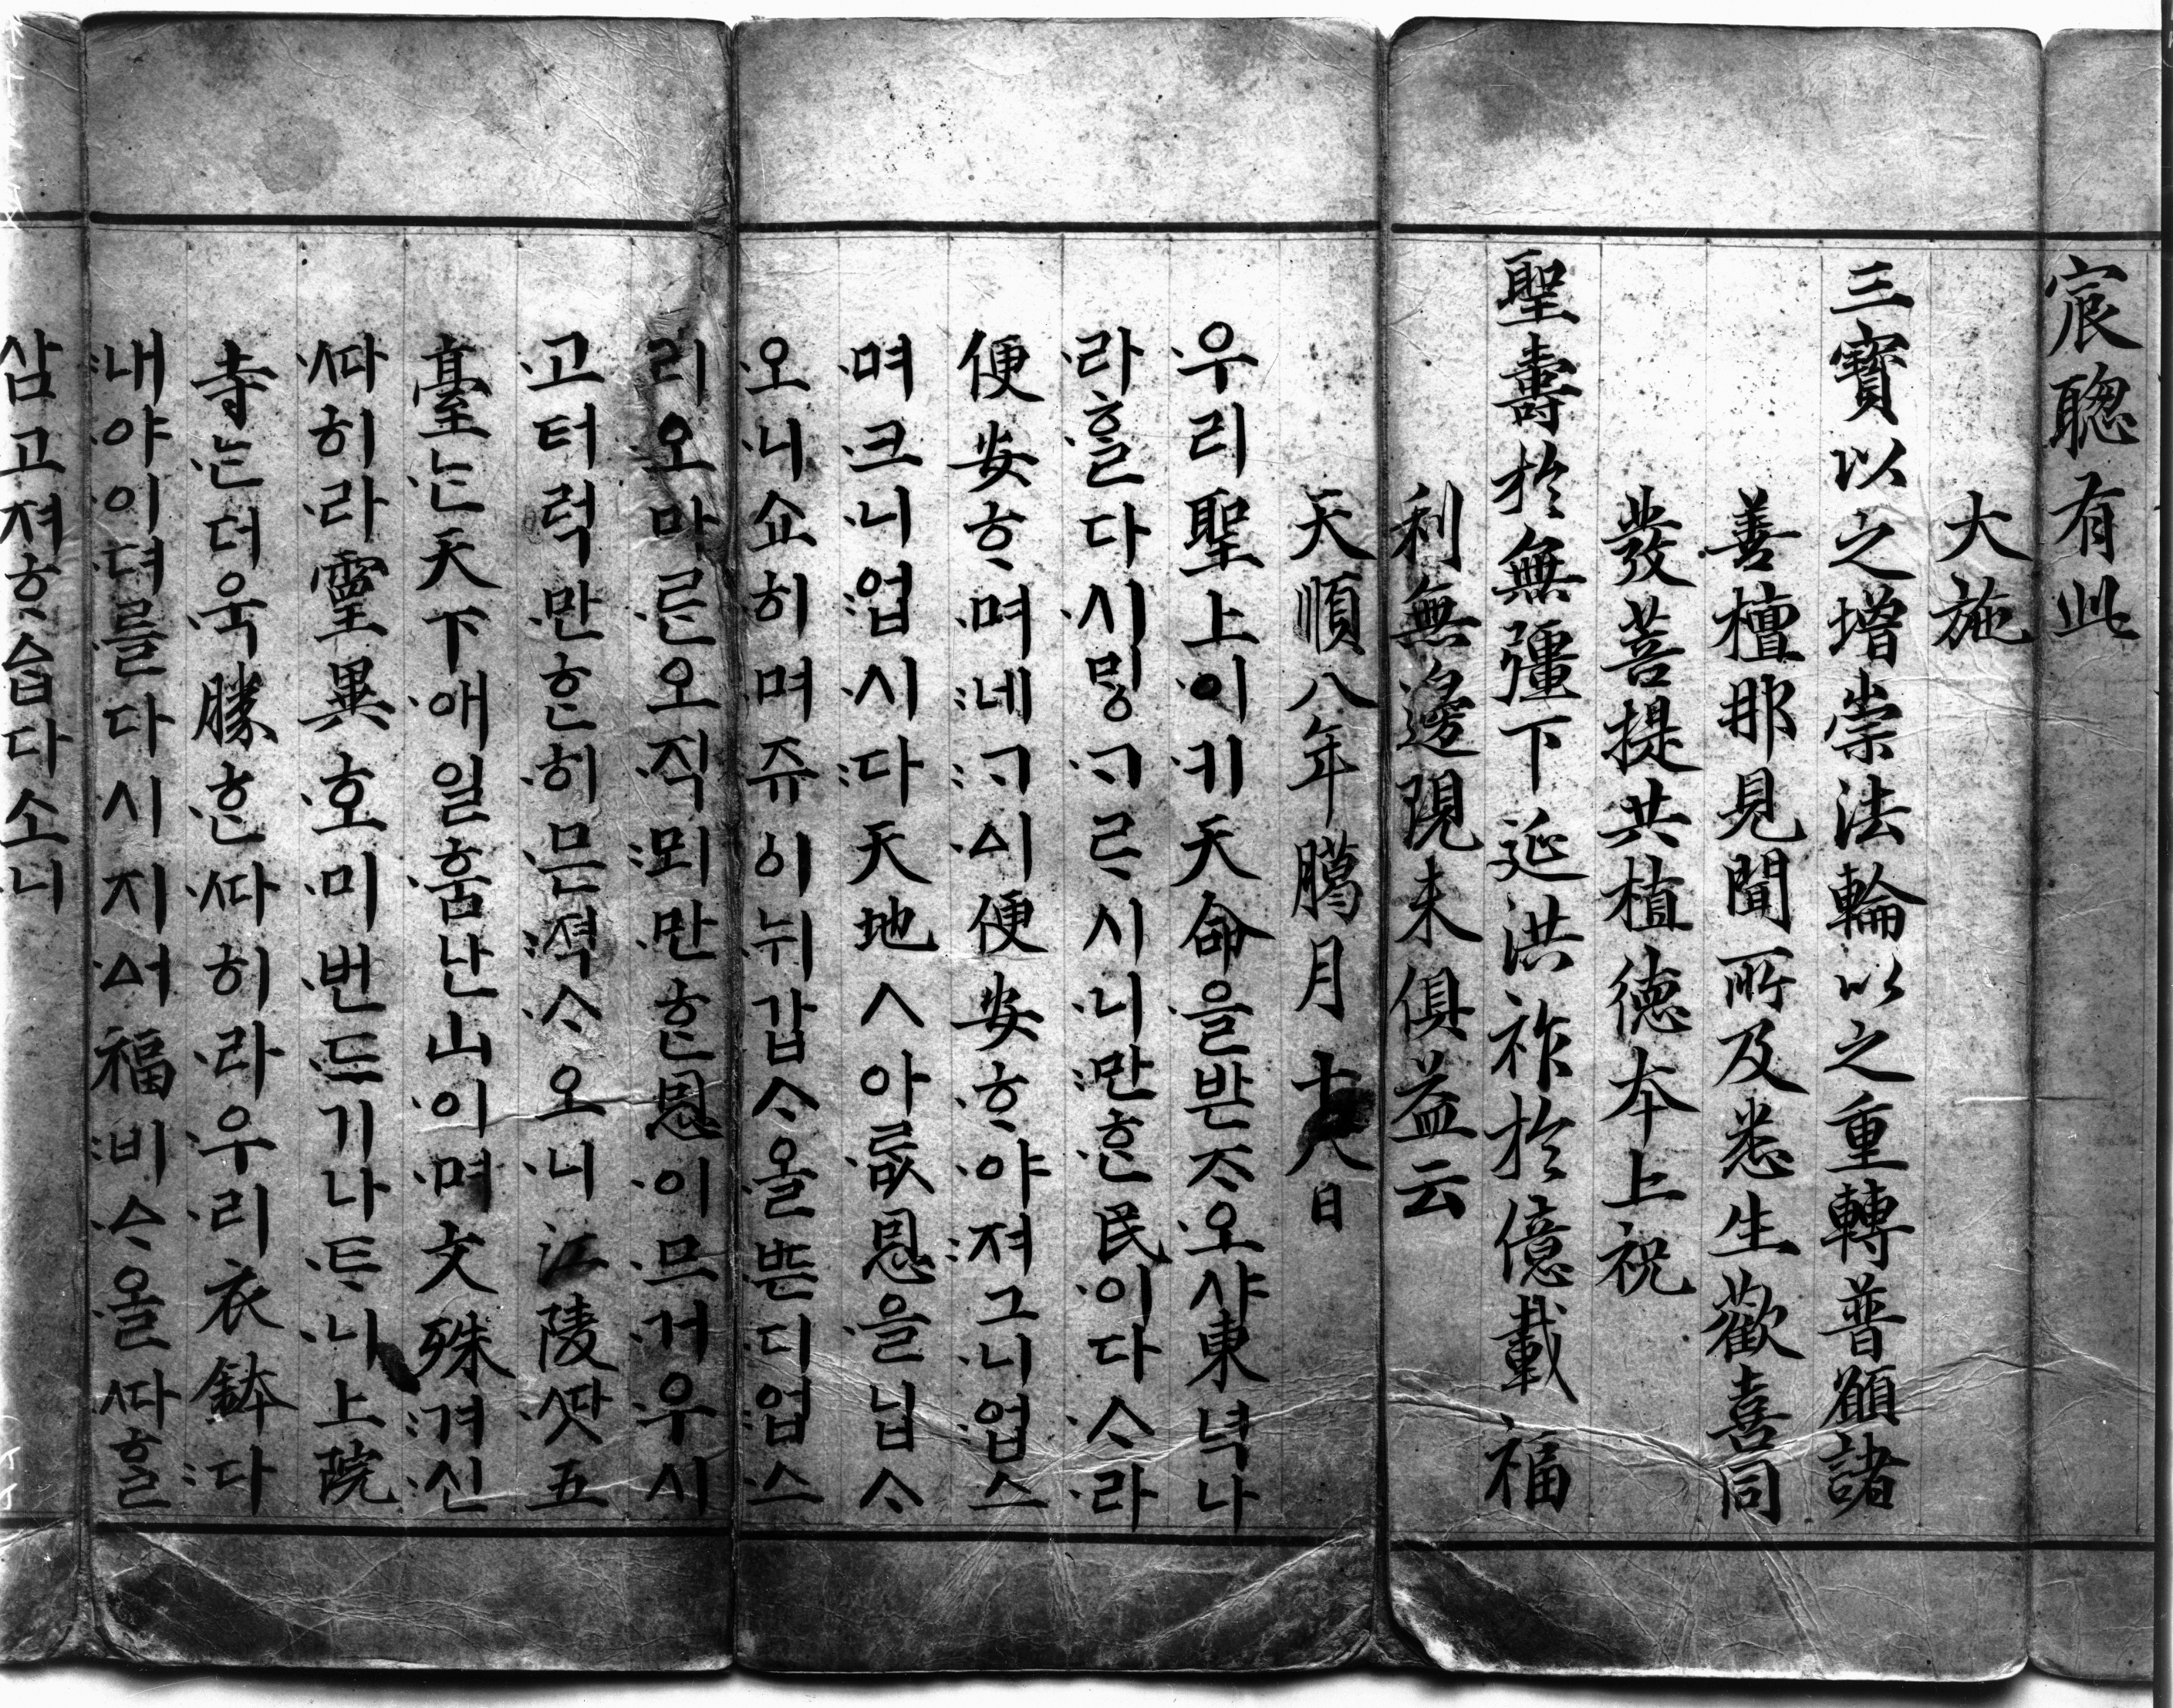 宸聰有此
大施
三寶以之增崇法輪以之重轉普願諸
善檀那見聞所及悉生歡喜同
發菩提共植德本上祝
聖壽於無彊下延洪祚於億載福
利無邊現未俱益云
天順八年臈月十八日
우리聖上이키天命을받ᄌᆞ오샤東녁나
라ᄒᆞᆯ다시ᄆᆡᇰᄀᆞᄅᆞ시니만ᄒᆞᆫ民이다ᄉᆞ라
便安ᄒᆞ며네ᄀᆞᅀᅵ便安ᄒᆞ야져그니업스
며크니업시다天地ㅅ아ᄅᆡᆺ恩을닙ᄉᆞ
오니쇼히며쥬이뉘갑ᄉᆞ올ᄠᅳ디업스
리오마ᄅᆞᆫ오직뫼만ᄒᆞᆫ恩이므거우시
고터럭만ᄒᆞᆫ히믄젹ᄉᆞ오니江陵ᄯᅡᆺ五
臺ᄂᆞᆫ天下애일훔난山이며文殊겨신
ᄯᅡ히라靈異호미번드기나ᄐᆞ니上院
寺ᄂᆞᆫ더욱勝ᄒᆞᆫᄯᅡ히라우리衣鉢다
내야이뎌를다시지ᅀᅥ福비ᅀᆞ올ᄯᅡᄒᆞᆯ
삼고져ᄒᆞᅀᆞᆸ다소니